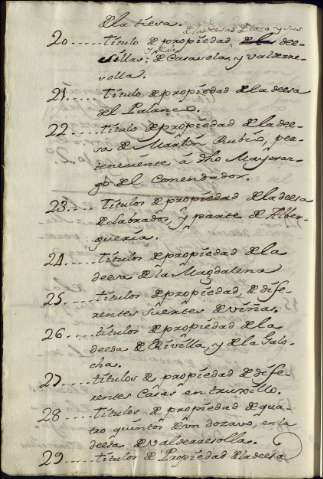 de la tierra.
20.... Titulo de propiedad
sillas, de Casasola, y Valderre-
volla.
21.... Titulo de propiedad de la deesa
del Palanco.
22.... Titulo de propiedad de la dee-
sa de Martin Rubio, per-
teneciente a dho Mayoraz-
go del Comendador.
23... Titulos de propiedad de la deesa
de labrados, y parte de Alber-
gueria.
24.... Titulos de propiedad de la
deesa de la Magdalena
25.... titulos de propiedad de dife-
rentes suertes de viñas.
26.... titulos de propiedad de la
deesa de Chivilla, y de la Galo-
cha.
27.... titulos de propiedad de dife-
rentes Casas en truxillo.
28.... titulos de propiedad de qua-
tro quintos de un dozavo, en la
deesa de Valdecarolla.
29.... titulos de Propiedad de la deesa